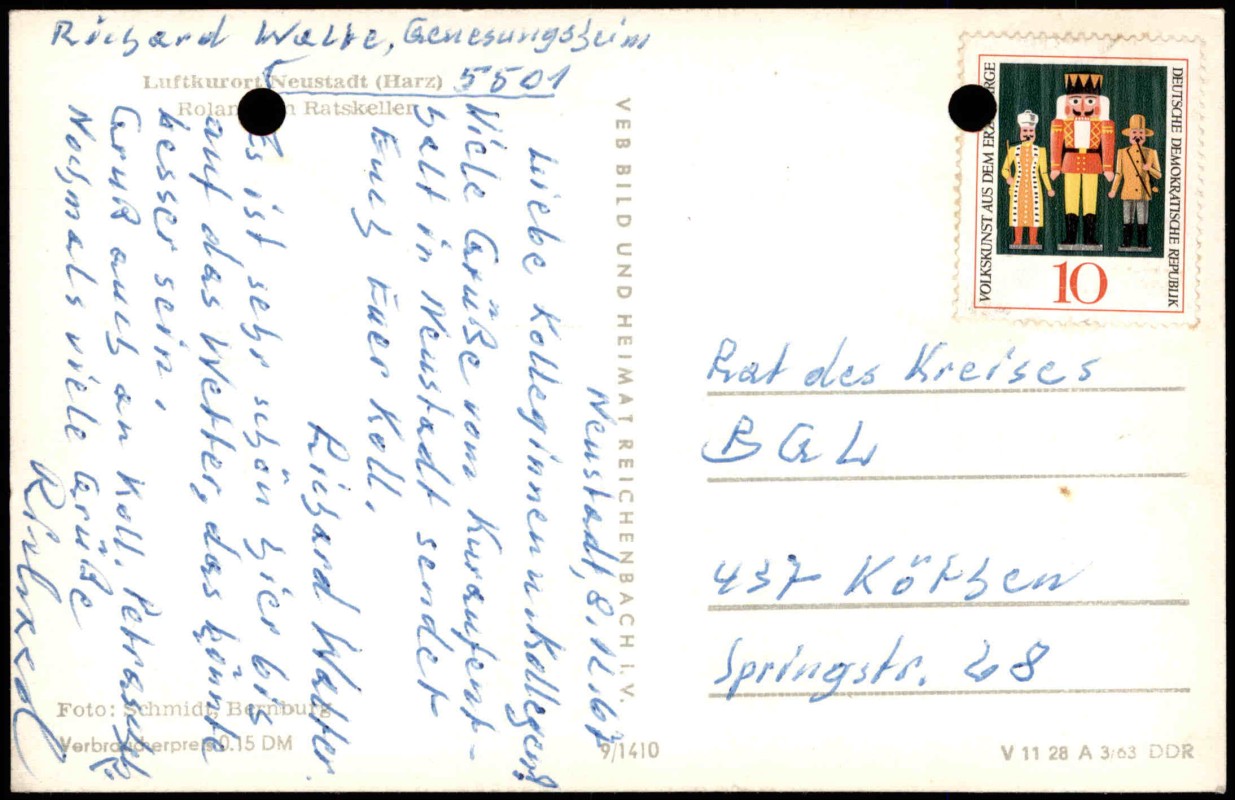 Richard Walte, Genesungsheim
5501
Luftkurort Neustadt (Harz)
Ratskeller
Neustadt, 8.12.67
Liebe Kolleginnen u Kollegen!
Viele Grüße vom Kuraufent-
halt in Neustadt sendet
Euch Euer Koll.
Richard Walter
Es ist sehr schön hier bis
auf das Wetter, das könnte
besser sein.
Gruß auch an Koll.
Nochmals viele Grüße
Richard
Foto: Schmidt, Bernburg
Verbraucherpreis 0.15 DM
VEB BILD UND HEIMAT REICHENBACH I. V.
9/1410
VOLKSKUNST AUS DEM ERZGEBIRGE
DEUTSCHE DEMOKRATISCHE REPUBLIK
10
Rat des Kreises
BGL
437 Köthen
Springstr. 28
V 11 28 A 3/63 DDR